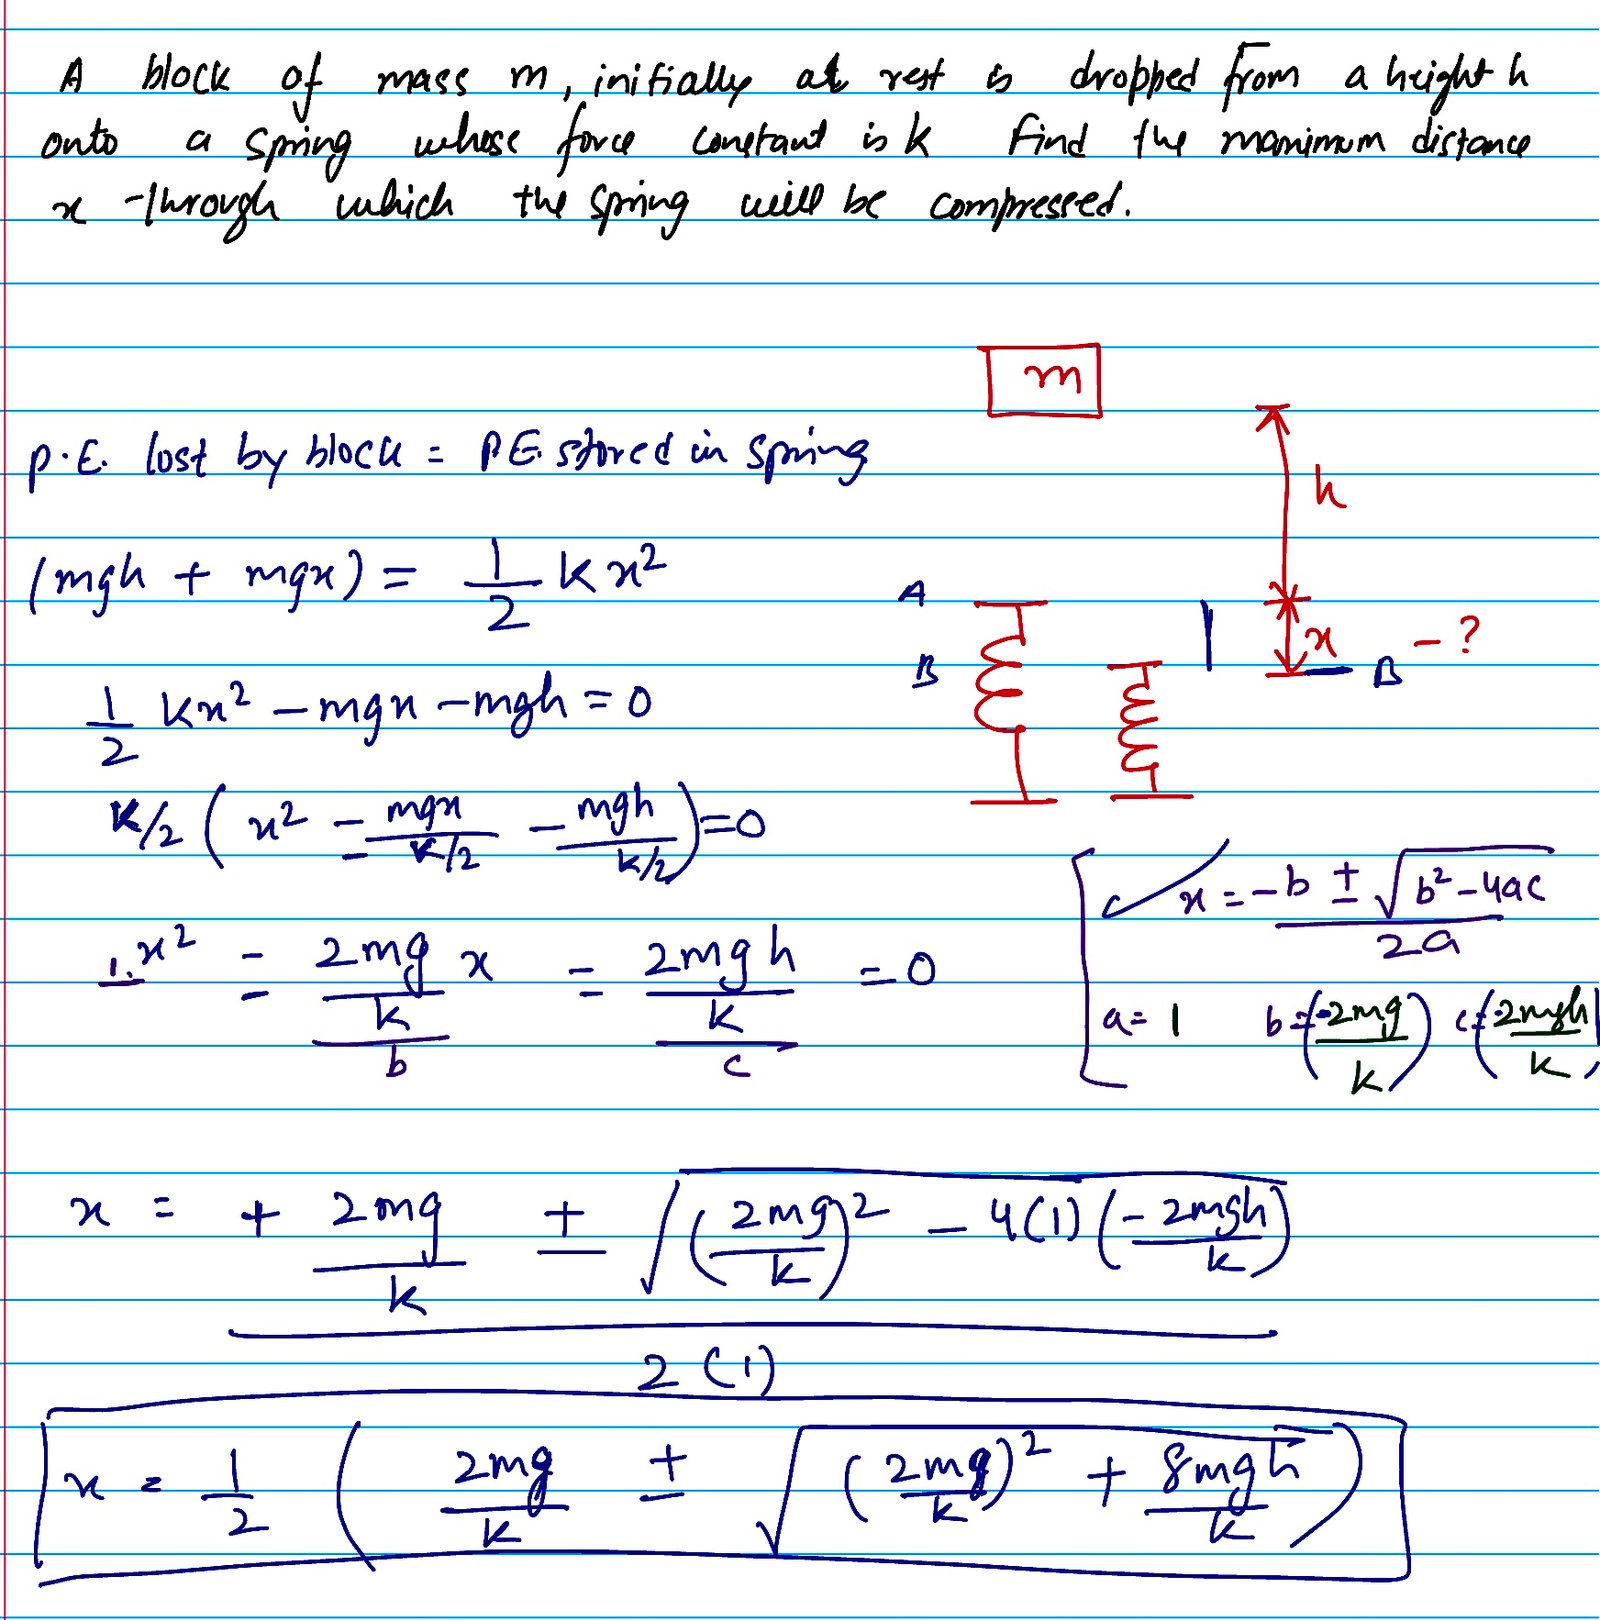 A block of mass m, initially at rest is dropped from a height h
onto a spring whose force constant is k Find the maximum distance
x through which the spring will be compressed.
m
P.E. lost by block = P.E. stored in spring
h
(mgh + mgx) = 1/2 kx²
A
B
x
- ?
B
1/2 kx² - mgx - mgh = 0
k/2 ( x² - mgx/(k/2) - mgh/(k/2) ) = 0
x = (-b ± √(b² - 4ac))/2a
1. x² - 2mg/k x - 2mgh/k = 0
b
c
a = 1 b = (-2mg/k) c = (-2mgh/k)
x = (+ 2mg/k ± √((2mg/k)² - 4(1)(-2mgh/k)))/2(1)
x = 1/2 ( 2mg/k ± √((2mg/k)² + 8mgh/k) )